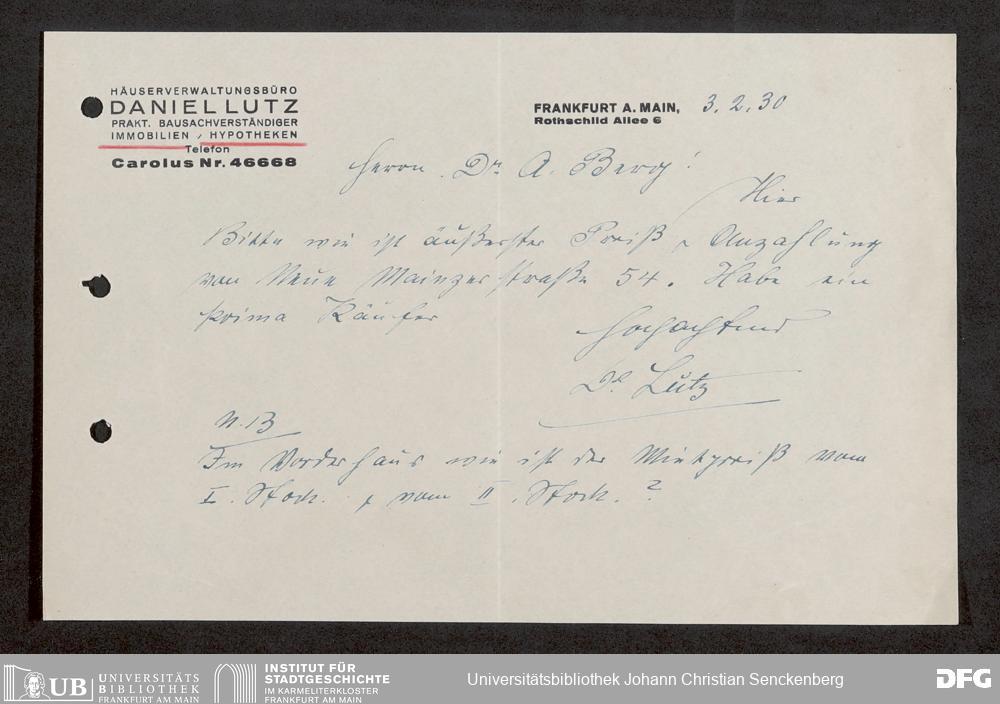 HÄUSERVERWALTUNGSBÜRO
DANIEL LUTZ
PRAKT. BAUSACHVERSTÄNDIGER
IMMOBILIEN, HYPOTHEKEN
Telefon
Carolus Nr. 46668
FRANKFURT A. MAIN, 3. 2. 30
Rothschild Allee 6
Herrn Dr A. Berg!
Hier
Bitte wie ist äußerster Preiß & Anzahlung
von Neue Mainzerstraße 54. Habe ein
prima Käufer
Hochachtend
Dl Lutz
N. B
Im Vorderhaus wie ist der Mietpreiß vom
I. Stock. & vom II. Stock.?
UB UNIVERSITÄTS
BIBLIOTHEK
FRANKFURT AM MAIN
INSTITUT FÜR
STADTGESCHICHTE
IM KARMELITERKLOSTER
FRANKFURT AM MAIN
Universitätsbibliothek Johann Christian Senckenberg
DFG